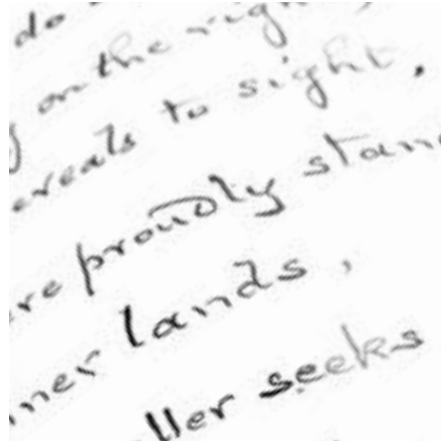 do
on the right
ereals to sight,
re proudly stand
ner lands,
ller seeks